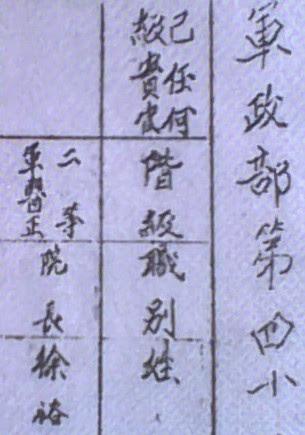 軍政部第四小
已任何
級貴官
階級
職別
姓
二等
軍醫正
院長
徐裕